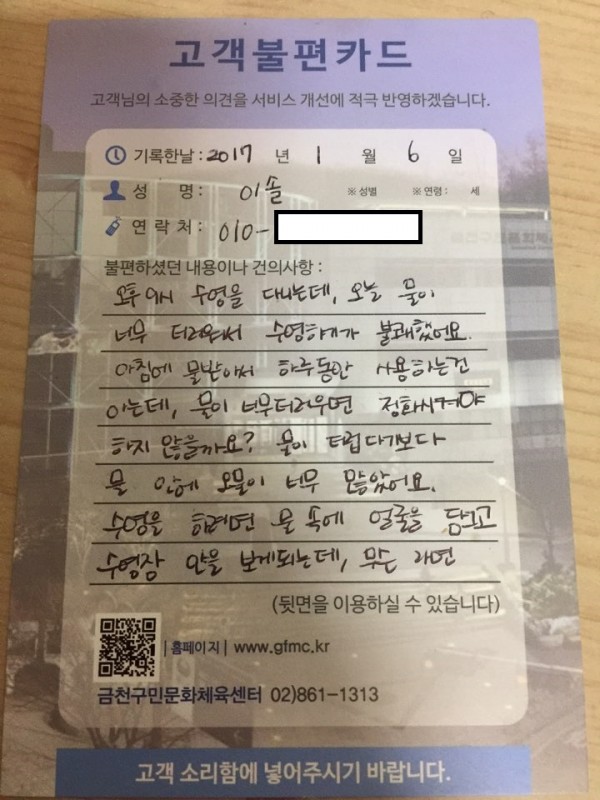 고객불편카드
고객님의 소중한 의견을 서비스 개선에 적극 반영하겠습니다.
기록한날 : 2017 년 1 월 6 일
성 명 : 이솔 ※ 성별 ※ 연령 : 세
연 락 처 : 010-
불편하셨던 내용이나 건의사항 :
오후 9시 수영을 다니는데, 오늘 물이
너무 더러워서 수영하기가 불쾌했어요.
아침에 물받아서 하루동안 사용하는건
아는데, 물이 너무더러우면 정화시켜야
하지 않을까요? 물이 더럽다기보다
물 안에 오물이 너무 많았어요.
수영을 하려면 물 속에 얼굴을 담그고
수영장 안을 보게되는데, 무슨 라면
(뒷면을 이용하실 수 있습니다)
| 홈페이지 | www.gfmc.kr
금천구민문화체육센터 02)861-1313
고객 소리함에 넣어주시기 바랍니다.